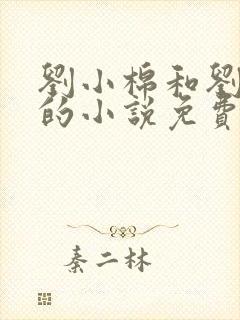 劉小棉和劉
的小說免費
秦二林